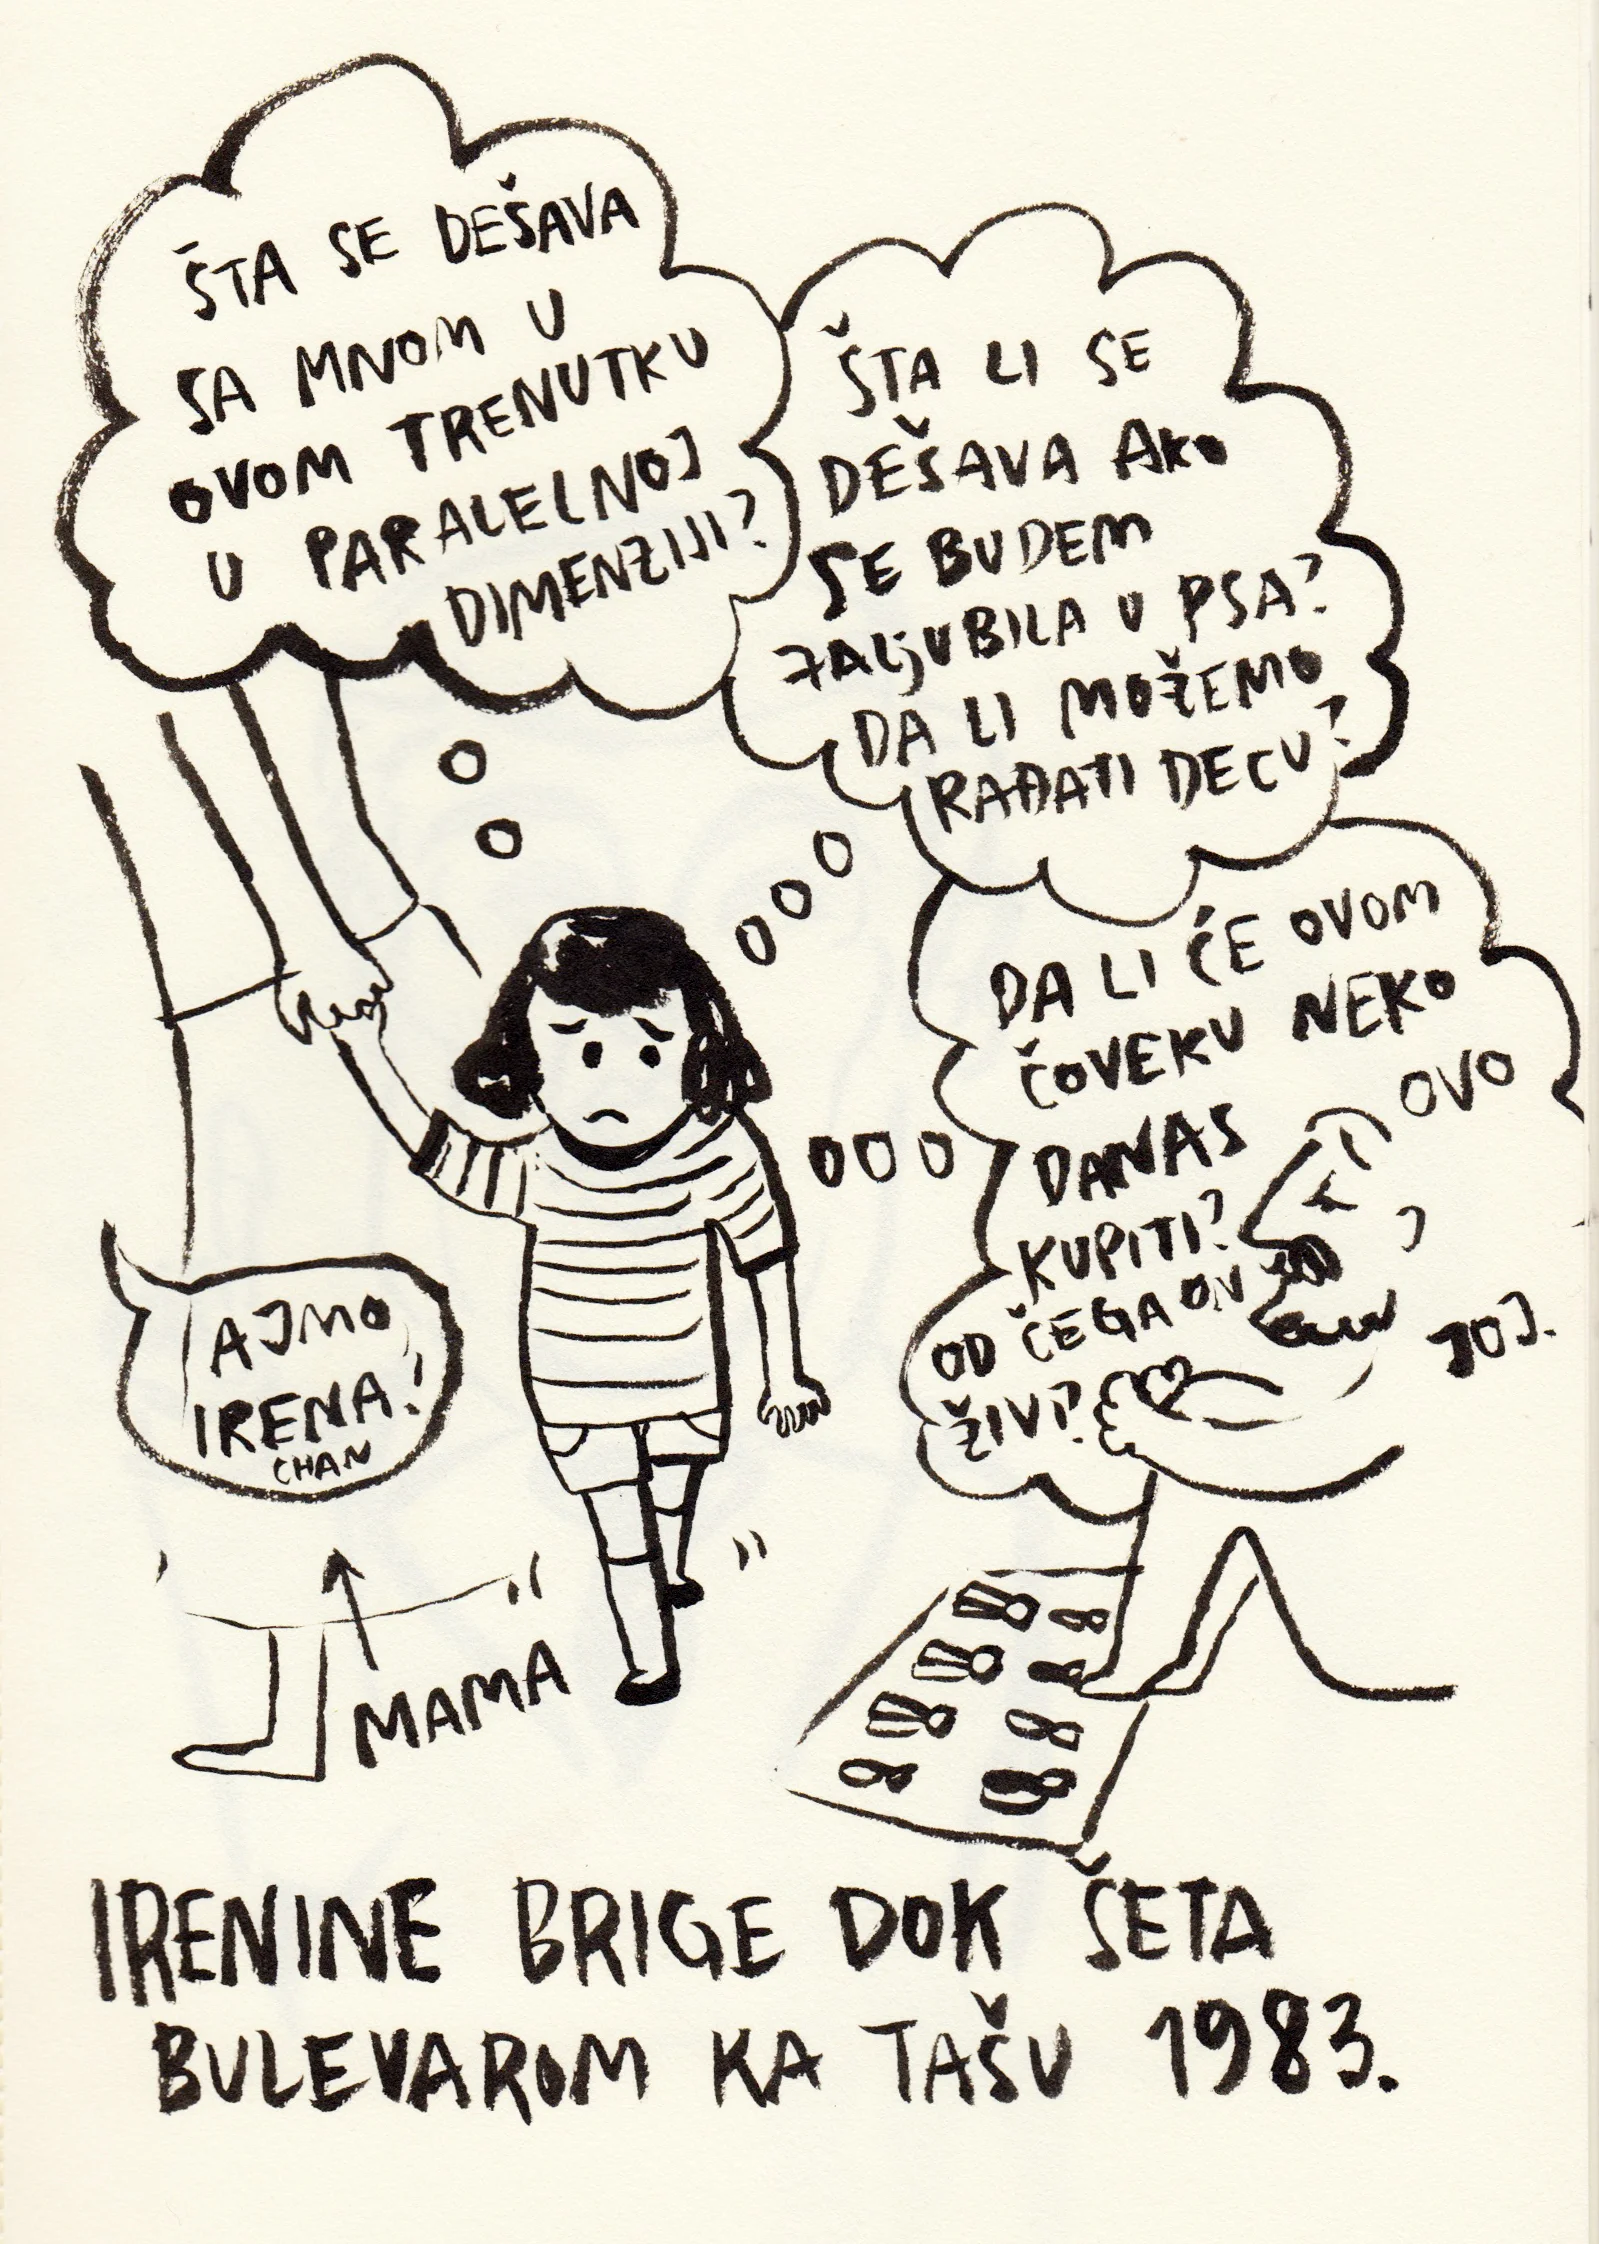 ŠTA SE DEŠAVA
SA MNOM U
OVOM TRENUTKU
U PARALELNOJ
DIMENZIJI?
ŠTA LI SE
DEŠAVA AKO
SE BUDEM
ZALJUBILA U PSA?
DA LI MOŽEMO
RAĐATI DECU?
DA LI ĆE OVOM
ČOVEKU NEKO
OVO
DANAS
KUPITI?
OD ČEGA ON
ŽIVI?
JOJ.
AJMO,
IRENA!
CHAN
MAMA
IRENINE BRIGE DOK ŠETA
BULEVAROM KA TAŠU 1983.